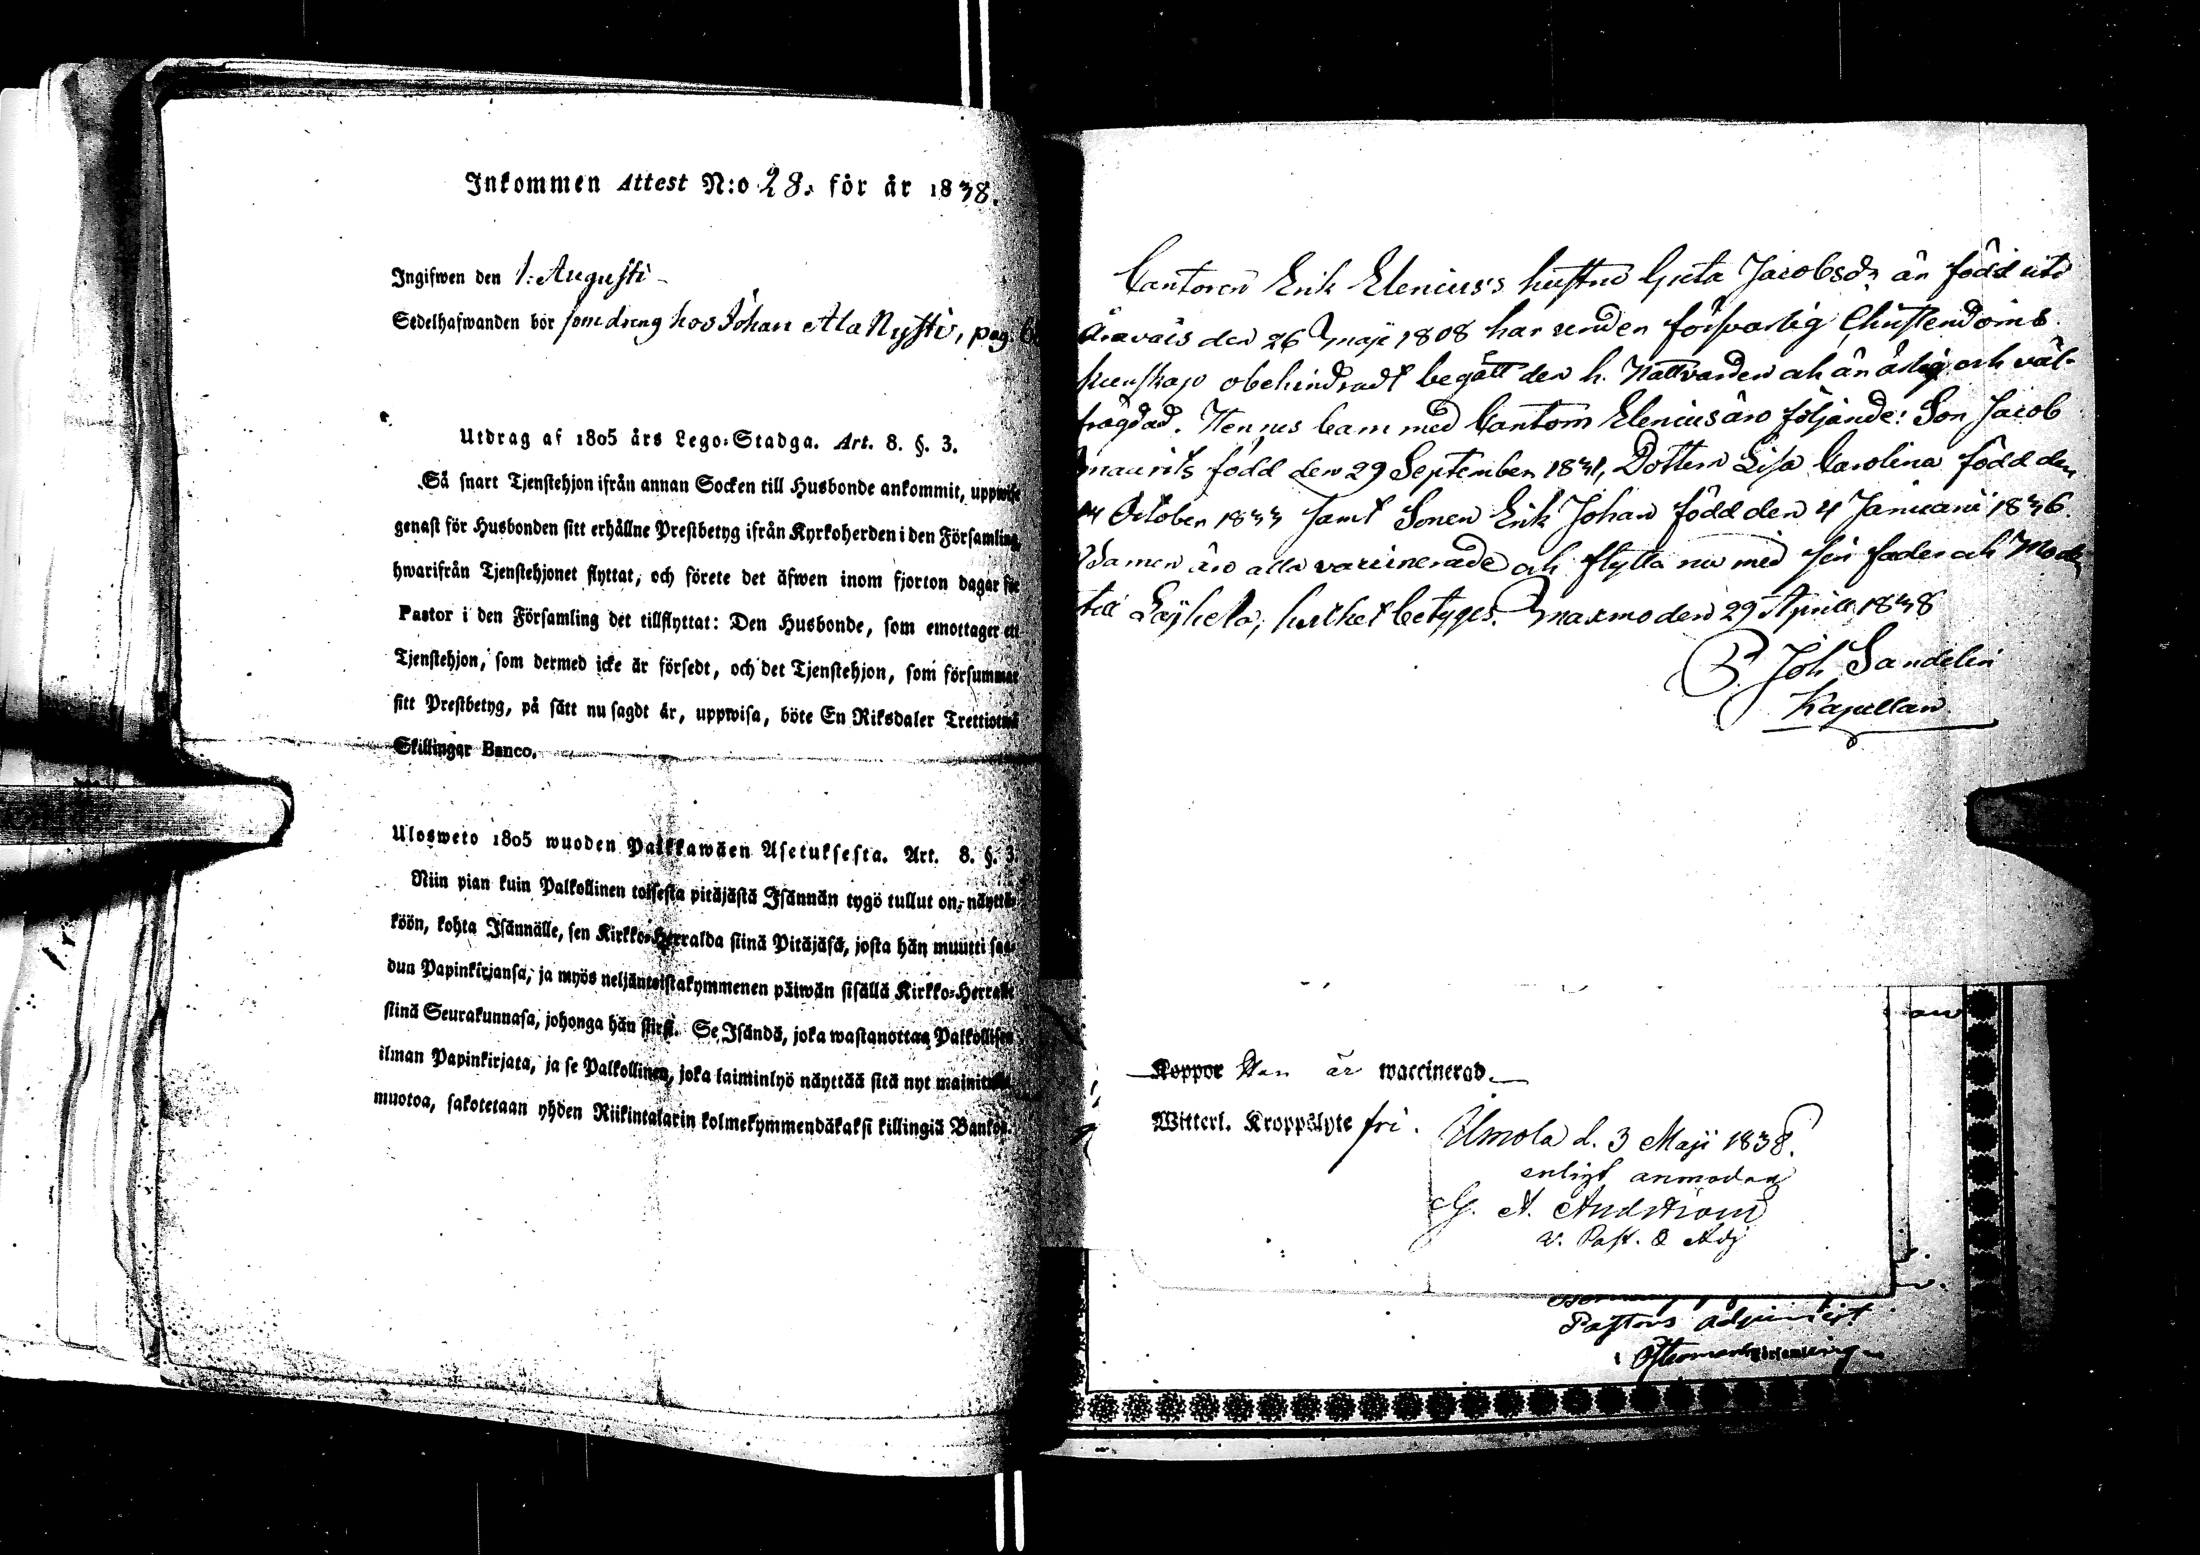 Inkommen Attest N:o 28. för år 1838.
Ingifwen den 1: Augusti
Sedelhafwanden bör som dreng hos Johan Ala Nysti, pag.
Utdrag af 1805 års Lego-Stadga. Art. 8. §. 3.
Så snart Tjenstehjon ifrån annan Socken till Husbonde ankommit, uppwise
genast för Husbonden sitt erhållne Prestbetyg ifrån Kyrkoherden i den Församling,
hwarifrån Tjenstehjonet flyttat, och förete det äfwen inom fjorton dagar för
Pastor i den Församling det tillflyttat: Den Husbonde, som emottager ett
Tjenstehjon, som dermed icke är försedt, och det Tjenstehjon, som försummar
sitt Prestbetyg, på sätt nu sagdt är, uppwisa, böte En Riksdaler Trettiotwå
Skillingar Banco.
Ulosweto 1805 wuoden Palkkawäen Asetuksesta. Art. 8. §. 3.
Niin pian kuin Palkollinen toisesta pitäjästä Isännän tygö tullut on, näyttä-
köön, kohta Isännälle, sen Kirkko-Herralda siinä Pitäjäsä, josta hän muutti saa-
dun Papinkirjansa, ja myös neljäntoistakymmenen päiwän sisällä Kirkko-Herralle
siinä Seurakunnasa, johonga hän siirsi. Se Isändä, joka wastanottaa Palkollisen
ilman Papinkirjata, ja se Palkollinen, joka laiminlyö näyttää sitä nyt mainitulla
muotoa, sakotetaan yhden Riikintalarin kolmekymmendäkaksi killingiä Bankos.
Cantoren Erik Elenius's hustru Greta Jacobsdr är född uti
Oravais den 26 Maji 1808 har under försvarlig Christendoms
kunskap obehindradt begått den h. Nattvarden och är ärlig och väl-
frägdad. Hennes barn med Cantorn Elenius äro följande: Son Jacob
Maurits född den 29 September 1831, Dottern Lisa Carolina född den
14 October 1833 samt Sonen Erik Johan född den 4 Januarii 1836.
Barnen äro alla vaccinerade och flytta nu med sin fader och Moder
till Laihela, hvilket betyges. Maxmo den 29 April 1838
Joh Sandelin
Kapellan
Koppor Han är waccinerad
Witterl. Kroppslyte fri.
d. 3 Maji 1838.
enligt anmodan
G. A.
v. Past. & Adj
Pastors adjunct